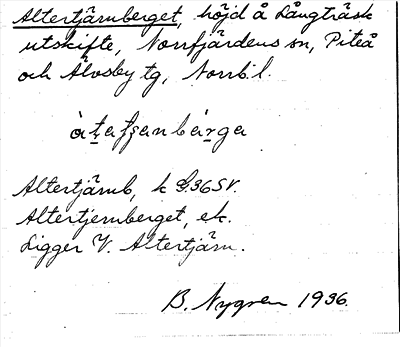 Altertjärnberget, höjd å Långträsk
utskifte, Norrfjärdens sn, Piteå
och Älvsby tg, Norrb. l.
Altertjärnb, k 36 SV.
Altertjernberget, ek.
Ligger V. Altertjärn.
B. Nygren 1936.